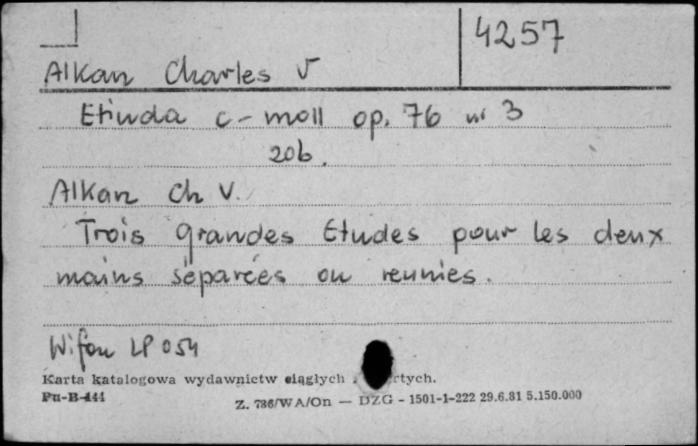 4257
Alkan Charles V
Etiuda c-moll op. 76 nr 3
20b.
Alkan Ch V.
Trois Grandes Etudes pour les deux
mains séparées ou reunies.
Wifon LP 054
Karta katalogowa wydawnictw ciągłych rtych.
Pu-B-144
Z. 786/WA/On — DZG - 1501-1-222 29.6.81 5.150.000